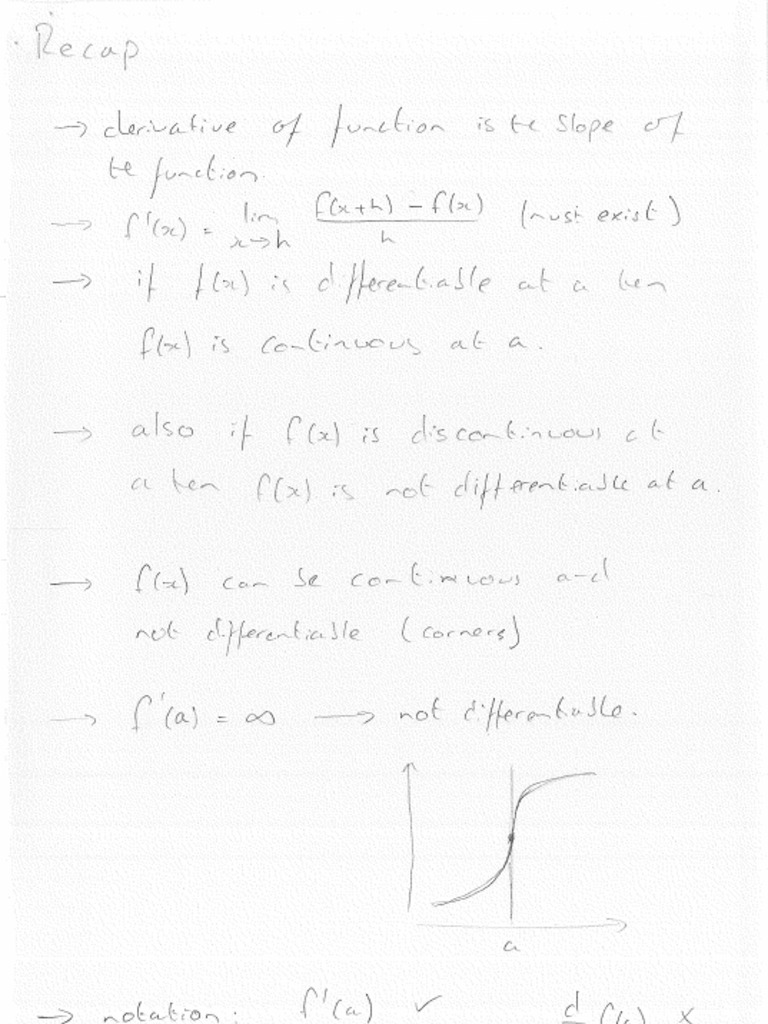 · Recap
→ derivative of function is te slope of
te function.
→ f'(x) = lim x→h (f(x+h) - f(x)) / h (must exist)
→ if f(x) is differentiable at a ten
f(x) is continuous at a.
→ also if f(x) is discontinuous at
a ten f(x) is not differentiable at a.
→ f(x) can be continuous and
not differentiable (corners)
→ f'(a) = ∞ → not differentiable.
a
→ notation: f'(a) ✓ d f(a) ×